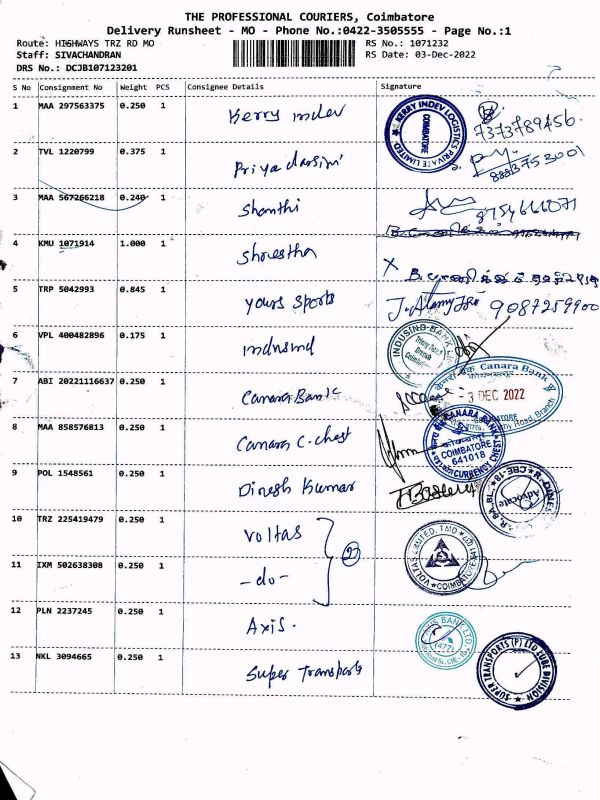 THE PROFESSIONAL COURIERS, Coimbatore
Delivery Runsheet - MO - Phone No.:0422-3505555 - Page No.:1
Route: HIGHWAYS TRZ RD MO RS No.: 1071232
Staff: SIVACHANDRAN RS Date: 03-Dec-2022
DRS No.: DCJB107123201
S No Consignment No Weight PCS Consignee Details Signature
1 MAA 297563375 0.250 1 Kerry indev
KERRY INDEV LOGISTICS PRIVATE LIMITED COIMBATORE
7373789456.
2 TVL 1220799 0.375 1 Priya darsini
8883753001
3 MAA 567266218 0.240 1 Shanthi
8754666071
4 KMU 1071914 1.000 1 Shrestha X
5 TRP 5042993 0.845 1 Yours Sports 9087259900
6 VPL 400482896 0.175 1 indusind
INDUSIND BANK
7 ABI 20221116637 0.250 1 Canara Bank
Canara Bank
- 3 DEC 2022
8 MAA 858576813 0.250 1 Canara C. chest
CANARA BANK
COIMBATORE
641018
CURRENCY CHEST
9 POL 1548561 0.250 1 Dinesh Kumar
Advocate
10 TRZ 225419479 0.250 1 Voltas
VOLTAS LIMITED, COIMBATORE
2
11 IXM 502638308 0.250 1 -do-
12 PLN 2237245 0.250 1 Axis.
AXIS BANK LTD
(477)
13 NKL 3094665 0.250 1 Super Transports
SUPER TRANSPORTS (P) LTD LUBE DIVISION